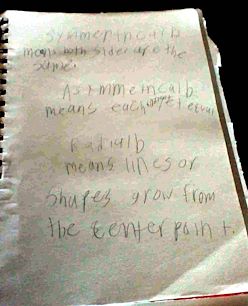 Symmetricalb
means both sides are the
same.
Asymmetricalb
means each isn't equal
Radialb
means lines or
shapes grow from
the centerpoint.